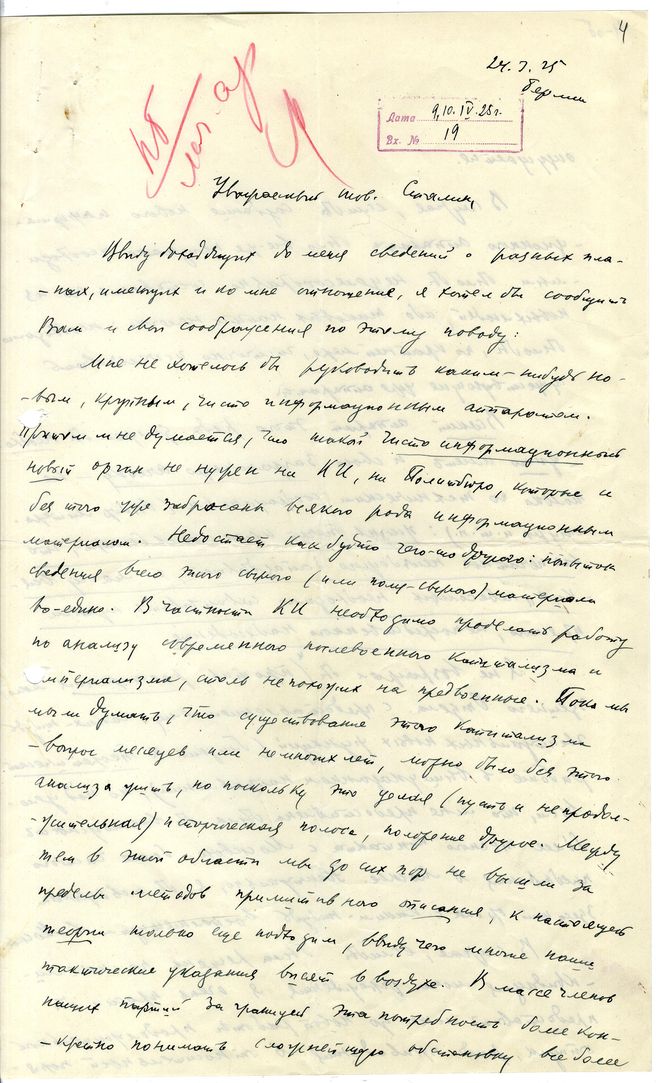 4
24.3.25
Берлин
Дата 9, 10. IV 25 г.
Вх. № 19
Уважаемый тов. Сталин,
Ввиду доходящих до меня сведений о разных пла-
-нах, имеющих и ко мне отношение, я хотел бы сообщить
Вам и свои соображения по этому поводу:
Мне не хотелось бы руководить каким-нибудь но-
-вым, крупным, чисто информационным аппаратом.
Притом мне думается, что такой чисто информационный
новый орган не нужен ни КИ, ни Политбюро, которые и
без того уже забросаны всякого рода информационным
материалом. Недостает как будто чего-то другого: попыток
сведения всего этого сырого (или полу-сырого) материала
во-едино. В частности КИ необходимо проделать работу
по анализу современного послевоенного капитализма и
империализма, столь непохожих на предвоенные. Пока мы
могли думать, что существование этого капитализма
-вопрос месяцев или немногих лет, можно было без этого
анализа жить, но поскольку это целая (пусть и непродол-
-жительная) историческая полоса, положение другое. Между
тем в этой области мы до сих пор не вышли за
пределы методов примитивного описания, к настоящей
теории только еще подходим, ввиду чего многие наши
тактические указания висят в воздухе. В массе членов
наших партий за границей эта потребность более кон-
-кретно понимать сложнейшую обстановку все более